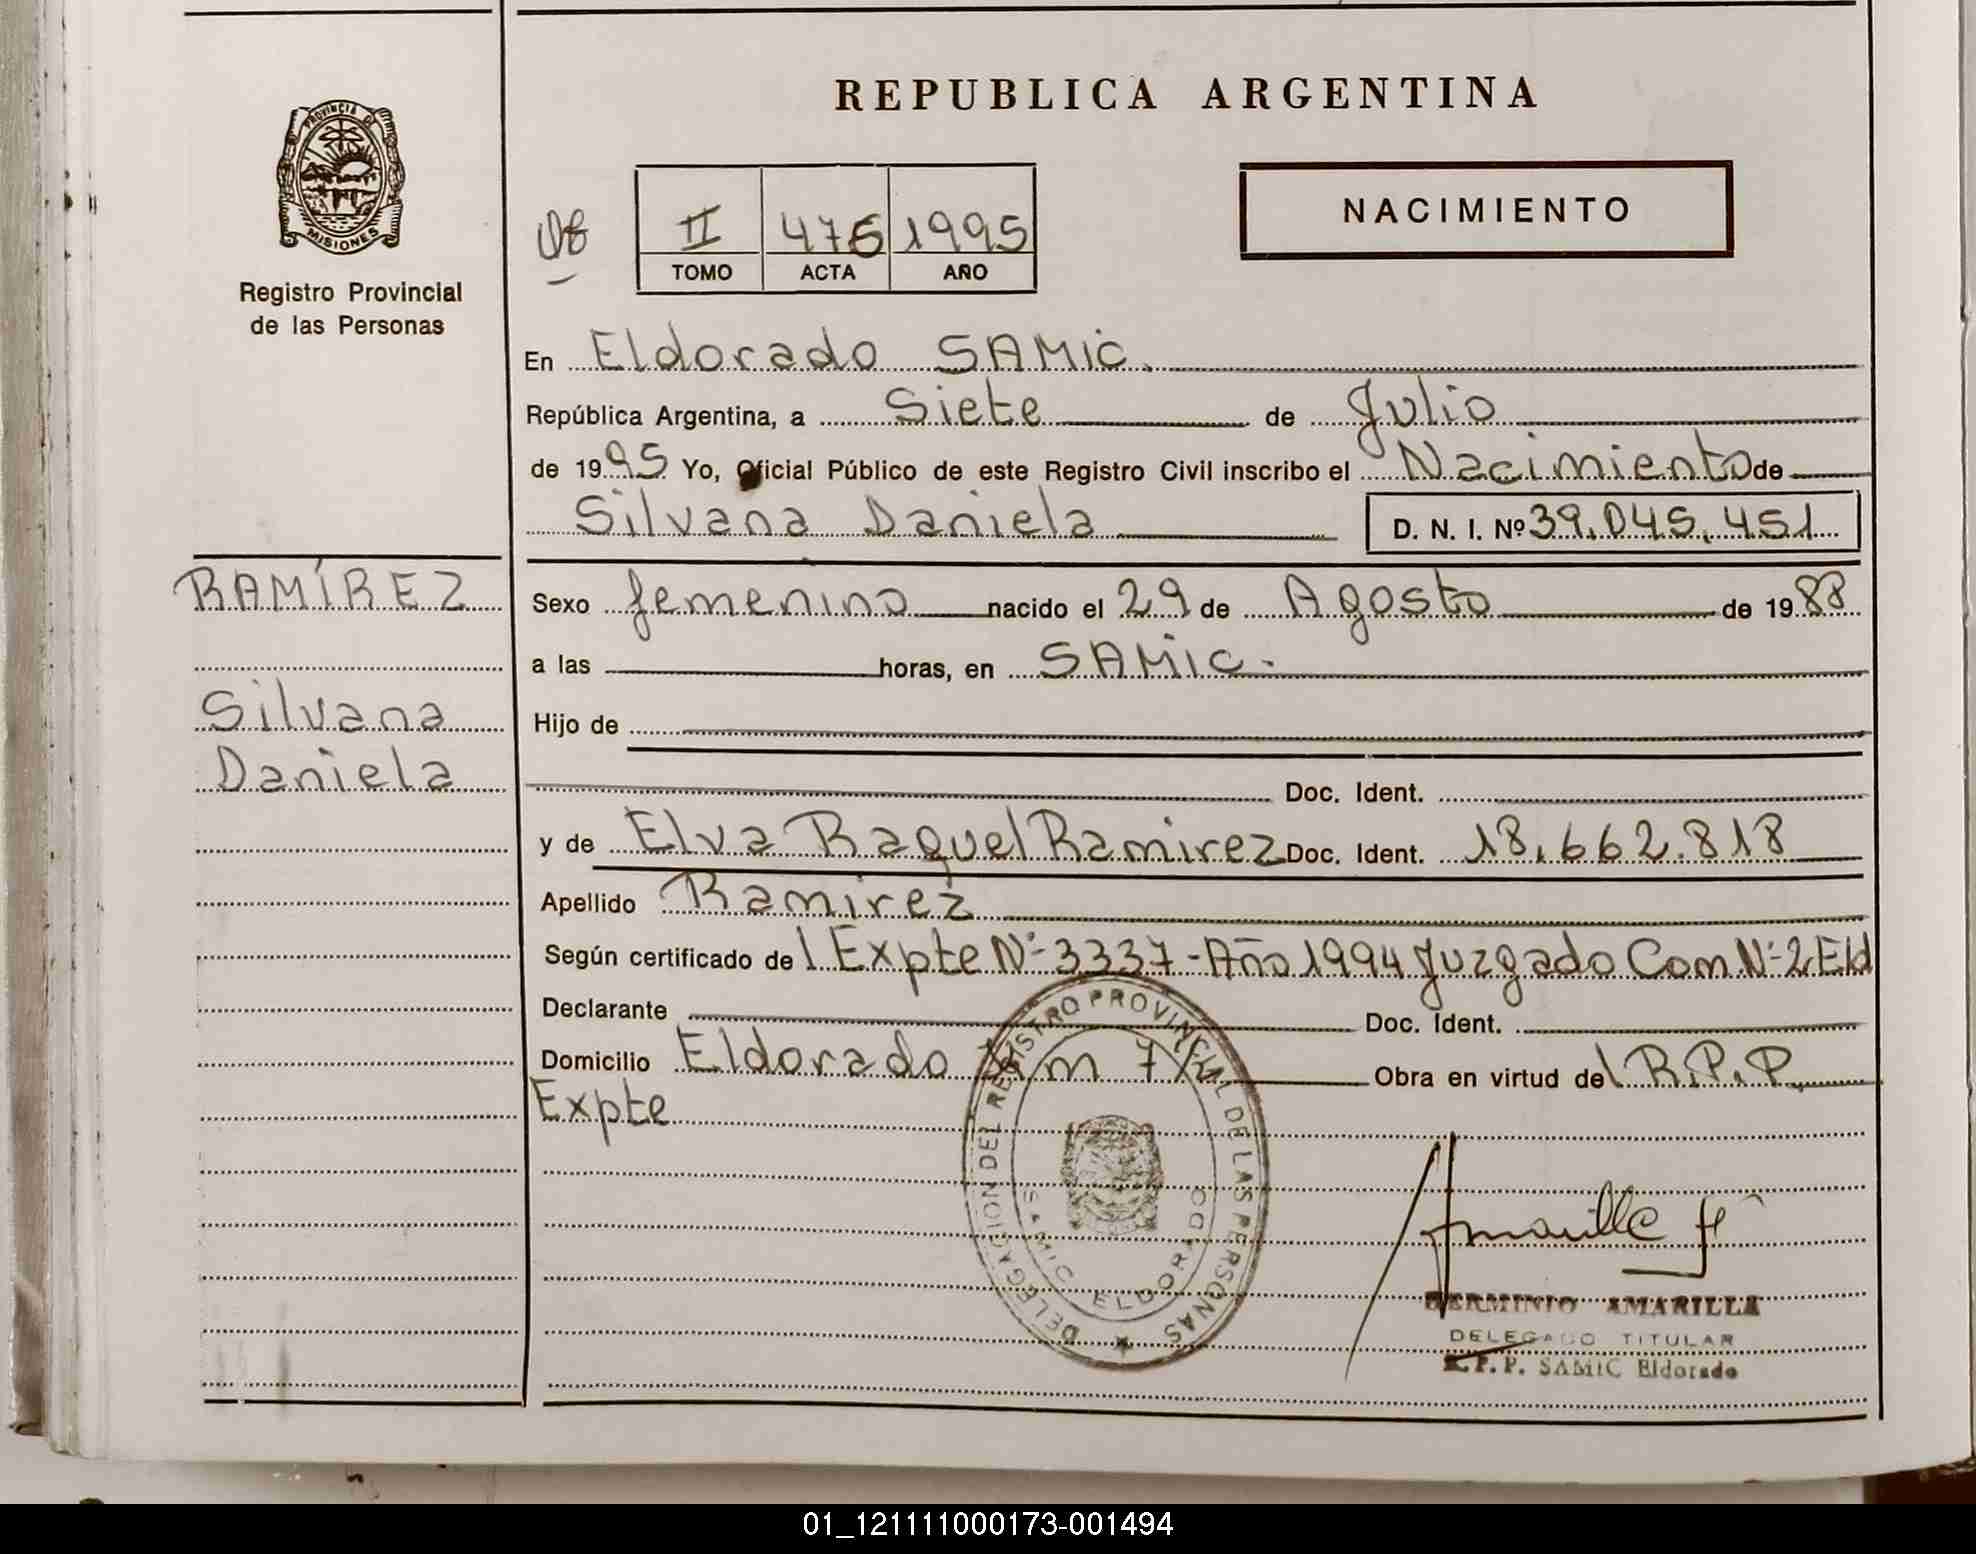 REPUBLICA ARGENTINA
PROVINCIA DE
MISIONES
Registro Provincial
de las Personas
II 476 1995
TOMO ACTA AÑO
NACIMIENTO
En Eldorado SAMiC.
República Argentina, a Siete de Julio
de 1995 Yo, Oficial Público de este Registro Civil inscribo el Nacimiento de
Silvana Daniela D. N. I. Nº 39.045.451
RAMÍREZ
Silvana
Daniela
Sexo femenino nacido el 29 de Agosto de 1988
a las horas, en SAMiC.
Hijo de
Doc. Ident.
y de Elva Raquel Ramirez Doc. Ident. 18.662.818
Apellido Ramirez
Según certificado del Expte Nº 3337-Año 1994 Juzgado Com Nº 2 Eld
Declarante Doc. Ident.
Domicilio Eldorado Km 7 Obra en virtud del R.P.P.
Expte
DELEGACION DEL REGISTRO PROVINCIAL DE LAS PERSONAS
SAMIC ELDORADO
Amarilla
HERMINIO AMARILLA
DELEGADO TITULAR
R.P.P. SAMIC Eldorado
01_121111000173-001494